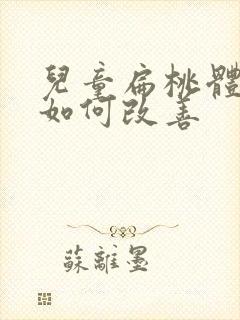 兒童扁桃體
如何改善
蘇離墨